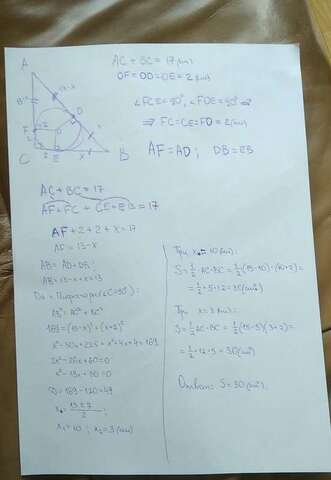 AC + BC = 17 (см)
OF = OD = OE = 2 (см)
∠FCE = 90°, ∠FOE = 90° ⇒
⇒ FC = CE = FO = 2 (см)
AF = AD; DB = EB
A
13-x
D
F
2
O
C
2
E
x
B
AC + BC = 17
AF + FC + CE + EB = 17
AF + 2 + 2 + x = 17
AF = 13 - x
AB = AD + DB;
AB = 13 - x + x = 13
AB² = AC² + BC²
169 = (15-x)² + (x+2)²
x² - 30x + 225 + x² + 4x + 4 = 169
2x² - 26x + 60 = 0
x² - 13x + 30 = 0
D = 169 - 120 = 49
x = 13 ± 7 / 2;
x₁ = 10; x₂ = 3 (см)
При x = 10 (см):
S = 1/2 · AC · BC = 1/2 (15-10) · (10+2) =
= 1/2 · 5 · 12 = 30 (см²)
При x = 3 (см):
S = 1/2 AC · BC = 1/2 (15-3)(3+2) =
= 1/2 · 12 · 5 = 30 (см²)
S = 30 (см²)